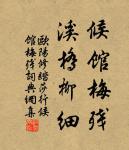 候館梅殘
溪橋柳細
歐陽修踏莎行候
館梅殘詞典網集